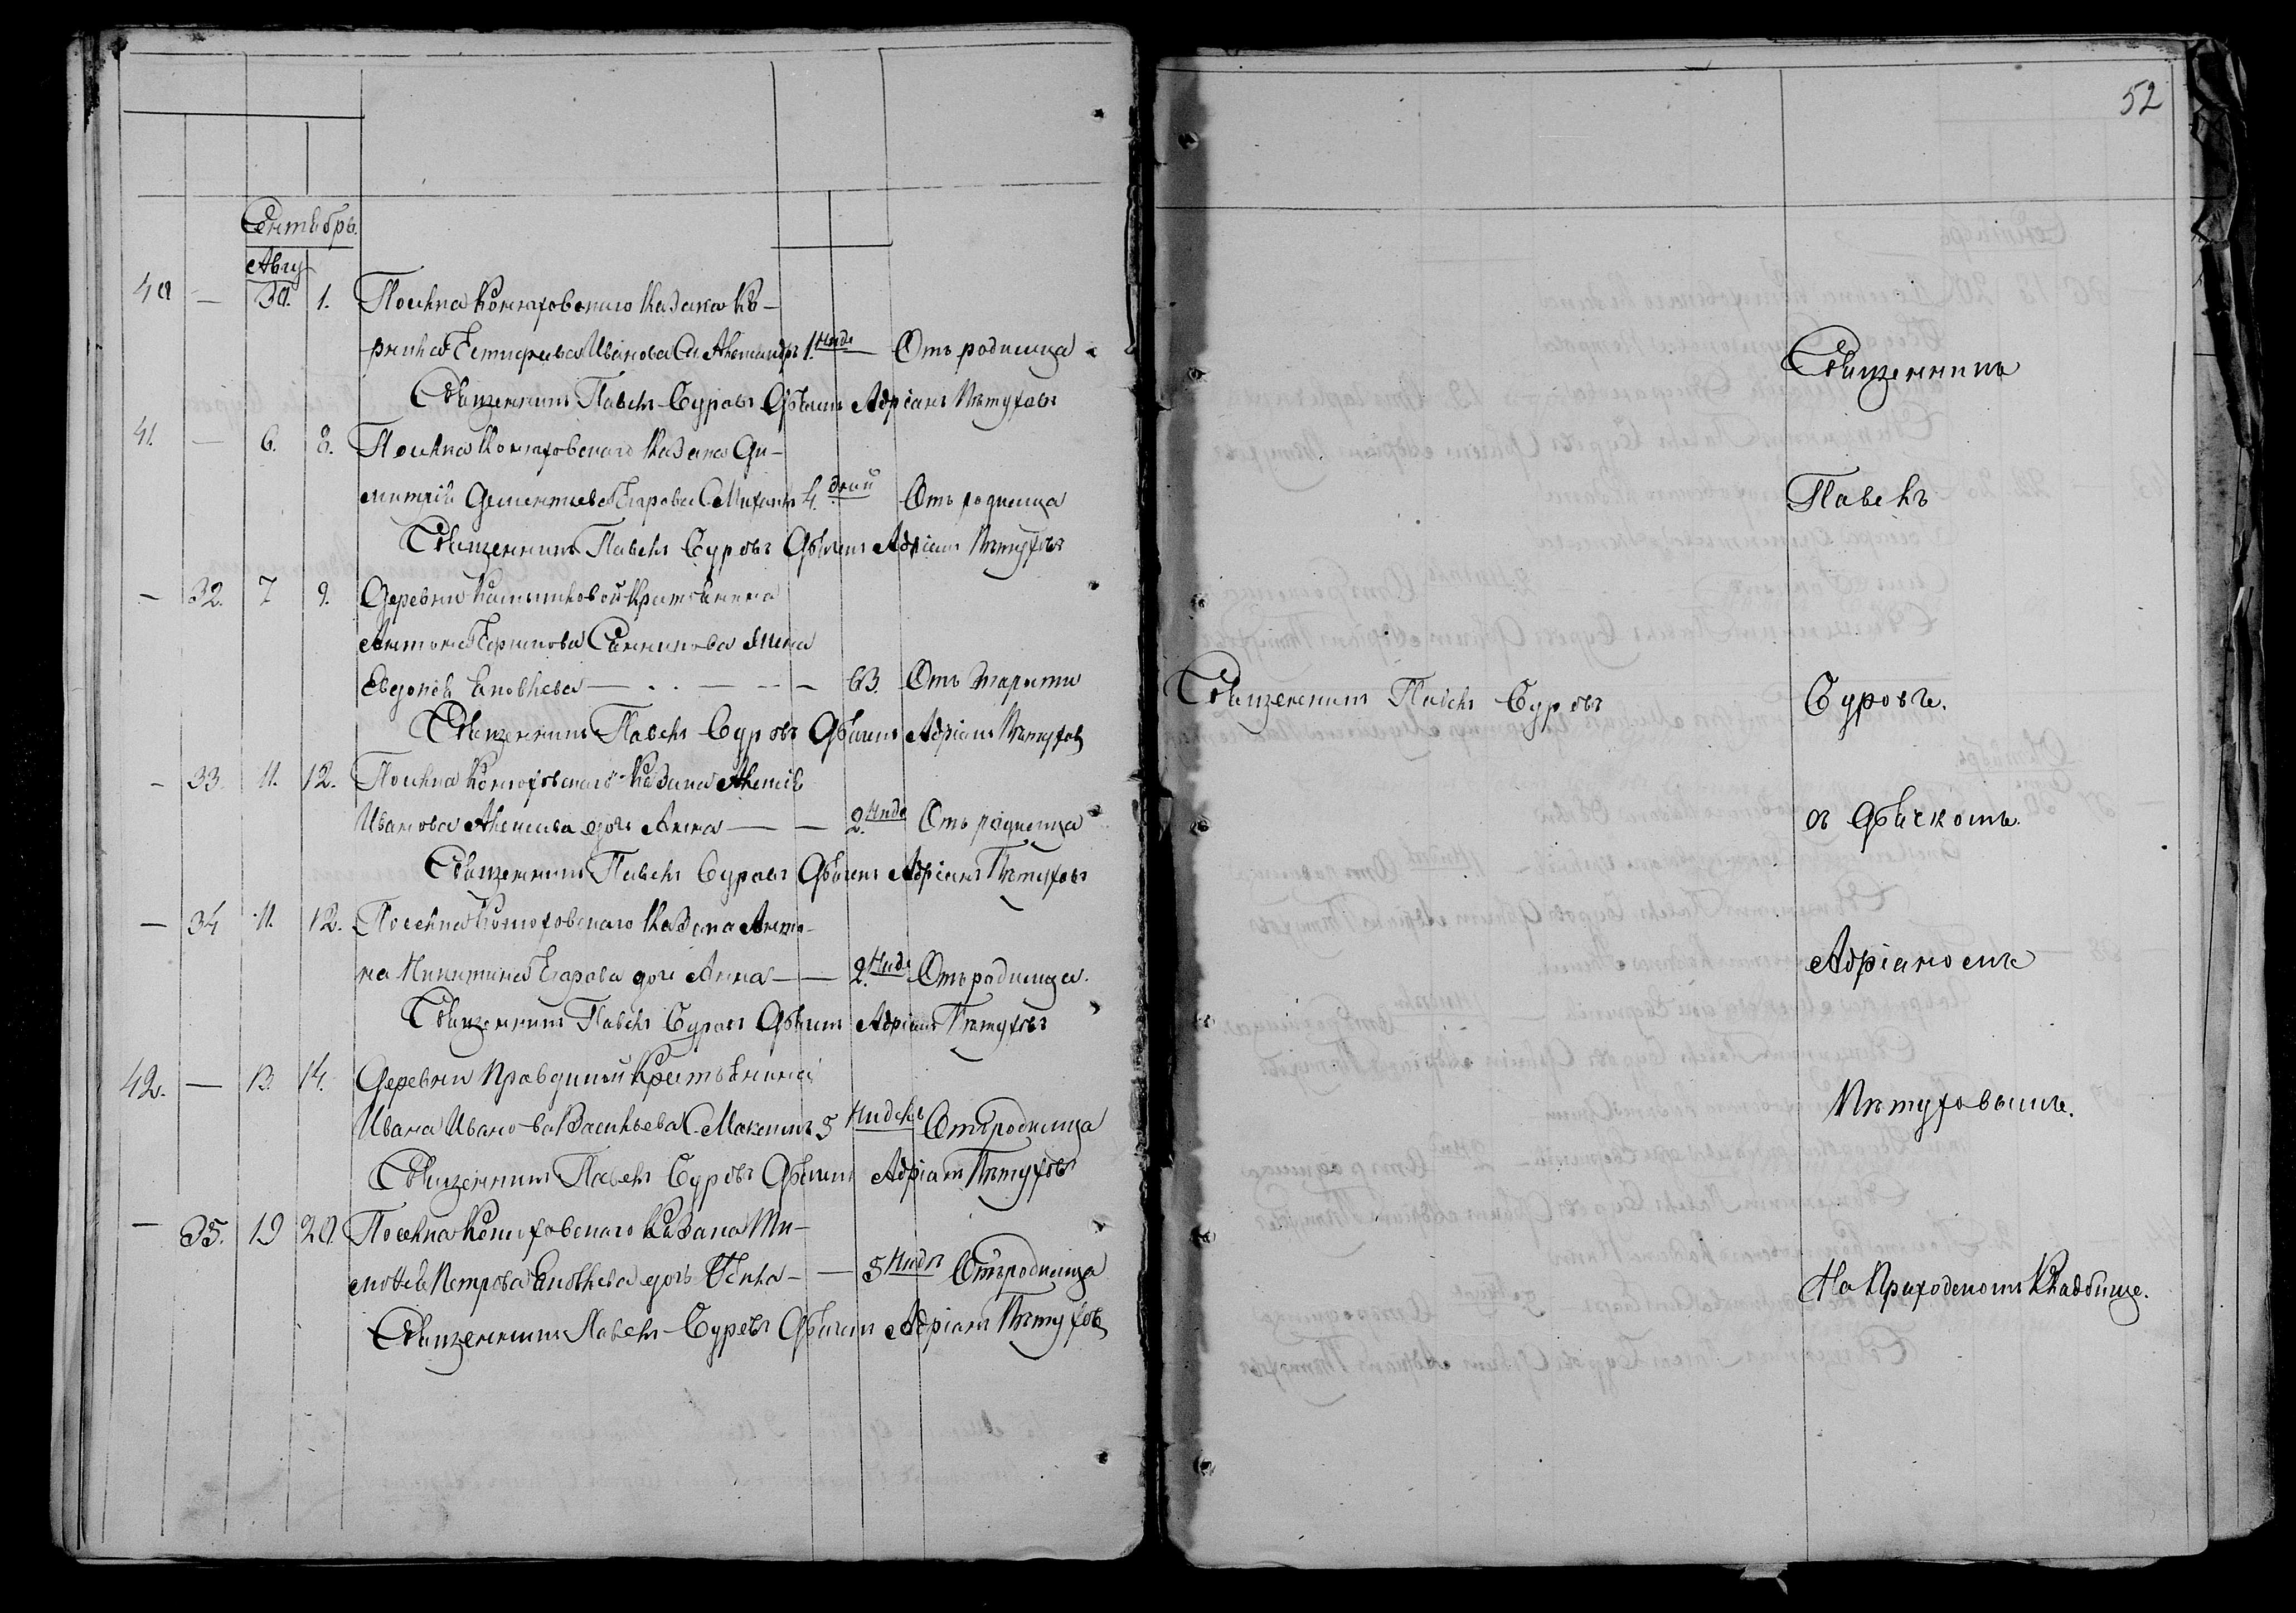 52
Сентябрь.
Авгу
40 — 30. 1. Поселка Комаровскаго Казака Ки-
рилла Иванова Сы Александръ 1. Неде — Отъ родимца
Священникъ Павелъ Суровъ Дьячекъ Адріанъ Пѣтуховъ
41. — 6. 8. Поселка Комаровскаго Казака Ди-
митрія Дементьева Егорова С. Михаилъ 4. дней Отъ родимца
Священникъ Павелъ Суровъ Дьячекъ Адріанъ Пѣтуховъ
— 32. 7 9. Деревни Крестьянина
Антона жена
Евдокія Яковлева — 63. Отъ старости
Священникъ Павелъ Суровъ Дьячекъ Адріанъ Пѣтуховъ
— 33. 11. 12. Поселка Комаровскаго Казака Алексія
Иванова Алексѣева дочь Анна — — 2. Неде Отъ родимца
Священникъ Павелъ Суровъ Дьячекъ Адріанъ Пѣтуховъ
— 34 11. 12. Поселка Комаровскаго Казака Анто-
на Никитина Егорова дочь Анна — — 2. Неде Отъ родимца.
Священникъ Павелъ Суровъ Дьячекъ Адріанъ Пѣтуховъ
42. — 13. 14. Деревни Правдиной Крестьянина
Ивана Иванова Васильева С. Максимъ 5 Недель Отъ родимца
Священникъ Павелъ Суровъ Дьячекъ Адріанъ Пѣтуховъ
— 35. 19 20. Поселка Комаровскаго Казака Ти-
моѳея Петрова Яковлева дочь Ѳекла — — 5 Недел Отъ родимца
Священникъ Павелъ Суровъ Дьячекъ Адріанъ Пѣтуховъ
Священникъ Павелъ Суровъ
Священникъ
Павелъ
Суровъ.
съ Дьячкомъ.
Адріаномъ
Пѣтуховымъ.
На Приходскомъ Кладбище.